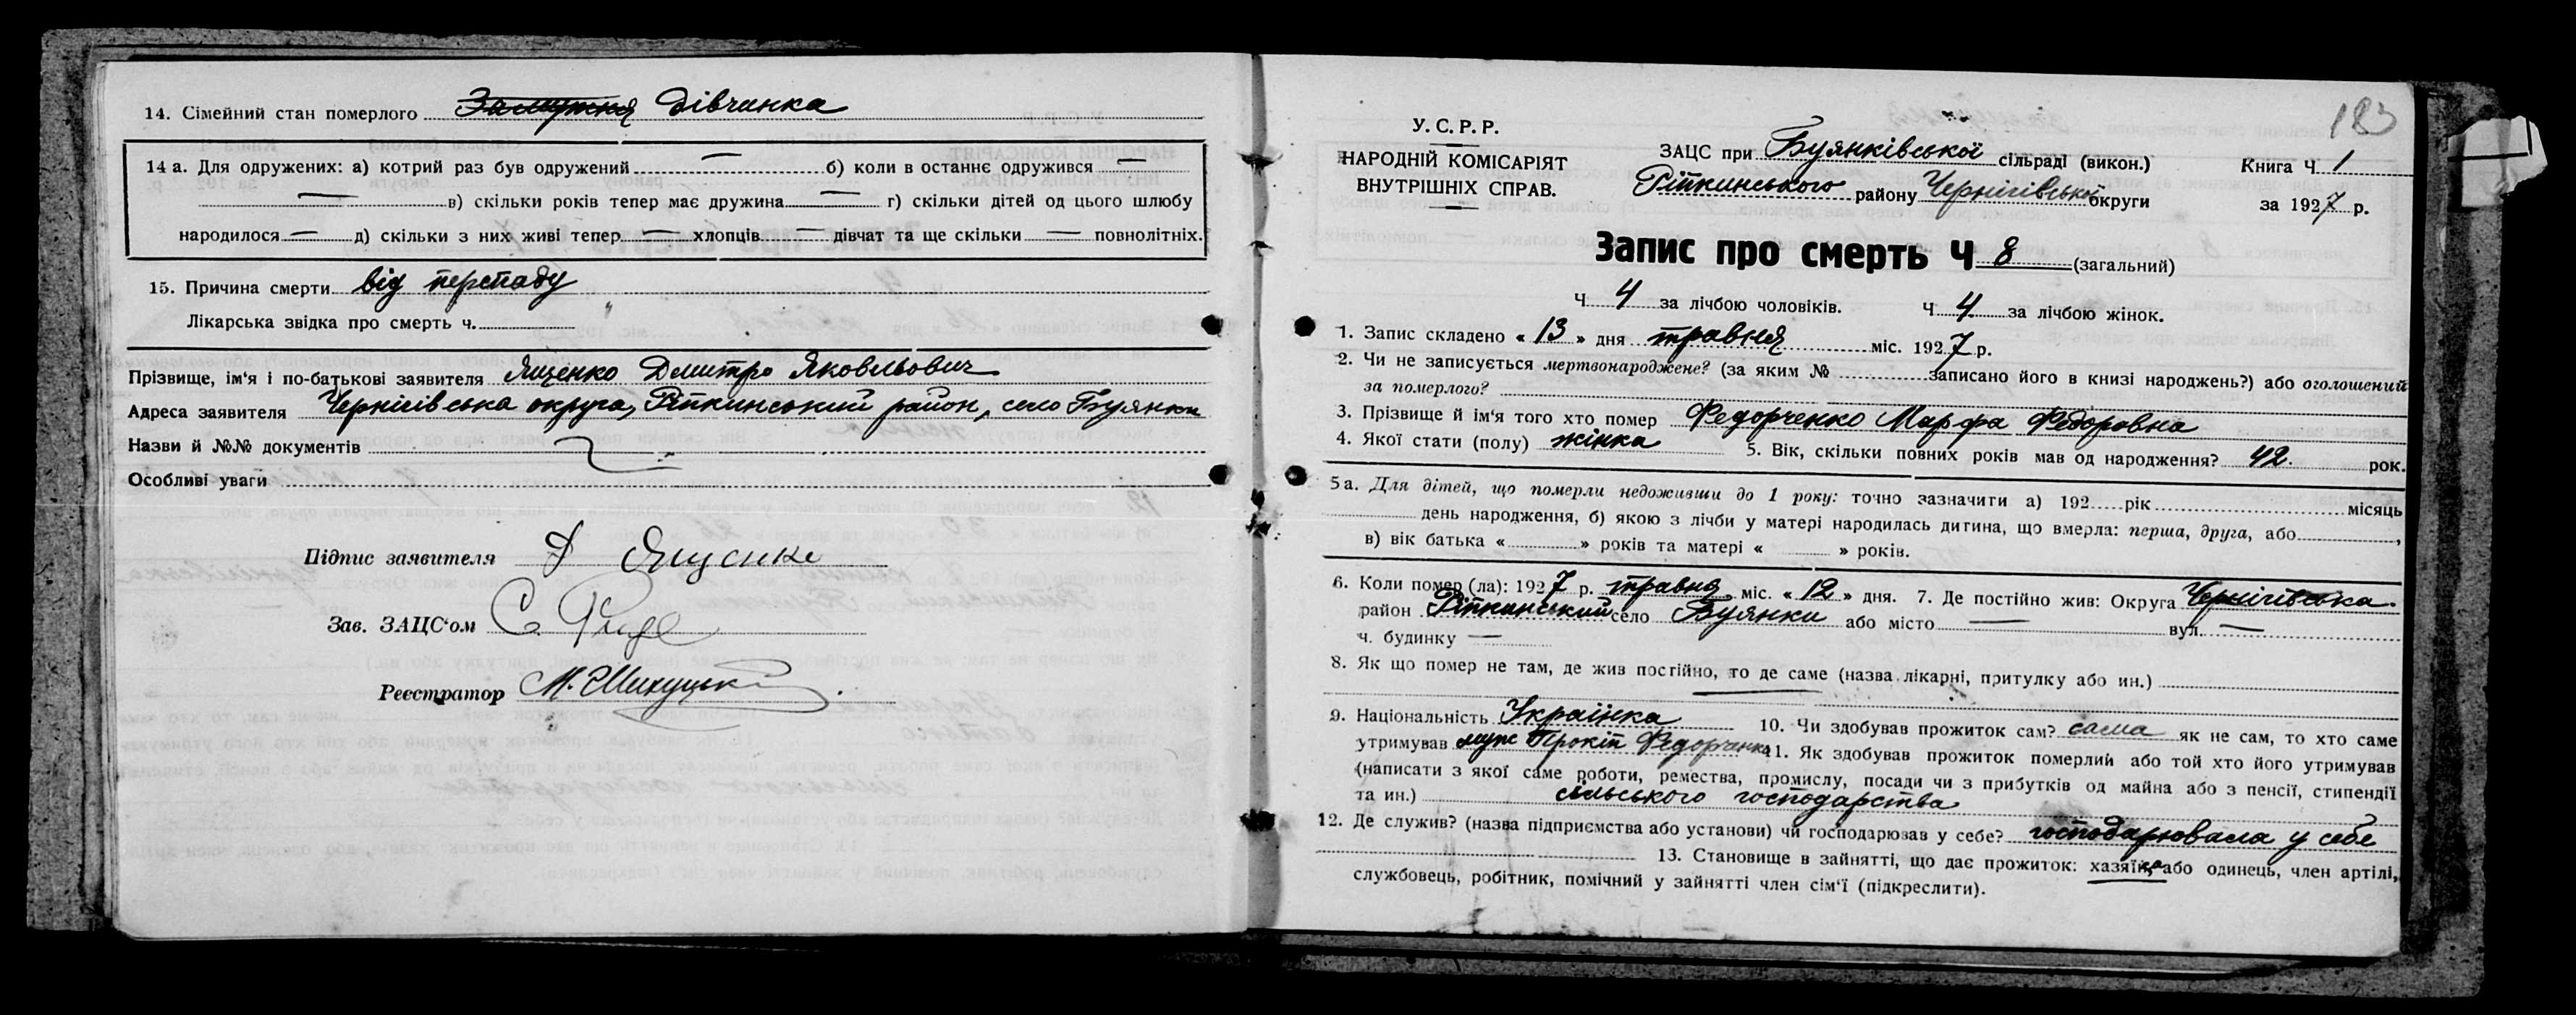 14. Сімейний стан померлого Замужня дівчинка
14 а. Для одружених: а) котрий раз був одружений — б) коли в останнє одружився —
— в) скільки років тепер має дружина — г) скільки дітей од цього шлюбу
народилося — д) скільки з них живі тепер — хлопців — дівчат та ще скільки — повнолітніх.
15. Причина смерти від перепаду
Лікарська звідка про смерть ч. "
Прізвище, ім'я і по-батькові заявителя Ященко Дмитро Яковльович
Адреса заявителя Чернігівська округа, Ріпкинський район, село Буянки
Назви й №№ документів
Особливі уваги
Підпис заявителя Д Ященко
Зав. ЗАЦС'ом С.
Реєстратор М.
183
У. С. Р. Р.
НАРОДНІЙ КОМІСАРІЯТ
ВНУТРІШНІХ СПРАВ.
ЗАЦС при Буянківської сільраді (викон.)
Ріпкинського району Чернігівської округи
Книга Ч 1
за 1927 р.
Запис про смерть Ч 8 (загальний)
Ч 4 за лічбою чоловіків. Ч 4 за лічбою жінок.
1. Запис складено « 13 » дня травня міс. 1927 р.
2. Чи не записується мертвонароджене? (за яким № записано його в книзі народжень?) або оголошений
за померлого?
3. Прізвище й ім'я того хто помер Федорченко Марфа Федоровна
4. Якої стати (полу) жінка 5. Вік, скільки повних років мав од народження? 42. рок.
5 а. Для дітей, що померли недоживши до 1 року: точно зазначити а) 192 рік місяць
день народження, б) якою з лічби у матері народилась дитина, що вмерла: перша, друга, або ,
в) вік батька « » років та матері « » років.
6. Коли помер (ла): 1927 р. травня міс. « 12 » дня. 7. Де постійно жив: Округа Чернігівська.
район Ріпкинський село Буянки або місто — вул. —
ч. будинку —
8. Як що помер не там, де жив постійно, то де саме (назва лікарні, притулку або ин.)
9. Національність Українка 10. Чи здобував прожиток сам? сама як не сам, то хто саме
утримував муж Прокіп Федорченко 11. Як здобував прожиток померлий або той хто його утримував
(написати з якої саме роботи, ремества, промислу, посади чи з прибутків од майна або з пенсії, стипендії
та ин.) сільського господарства
12. Де служив? (назва підприємства або установи) чи господарював у себе? господарювала у себе
13. Становище в зайнятті, що дає прожиток: хазяїн, або одинець, член артілі,
службовець, робітник, помічний у зайнятті член сім'ї (підкреслити).